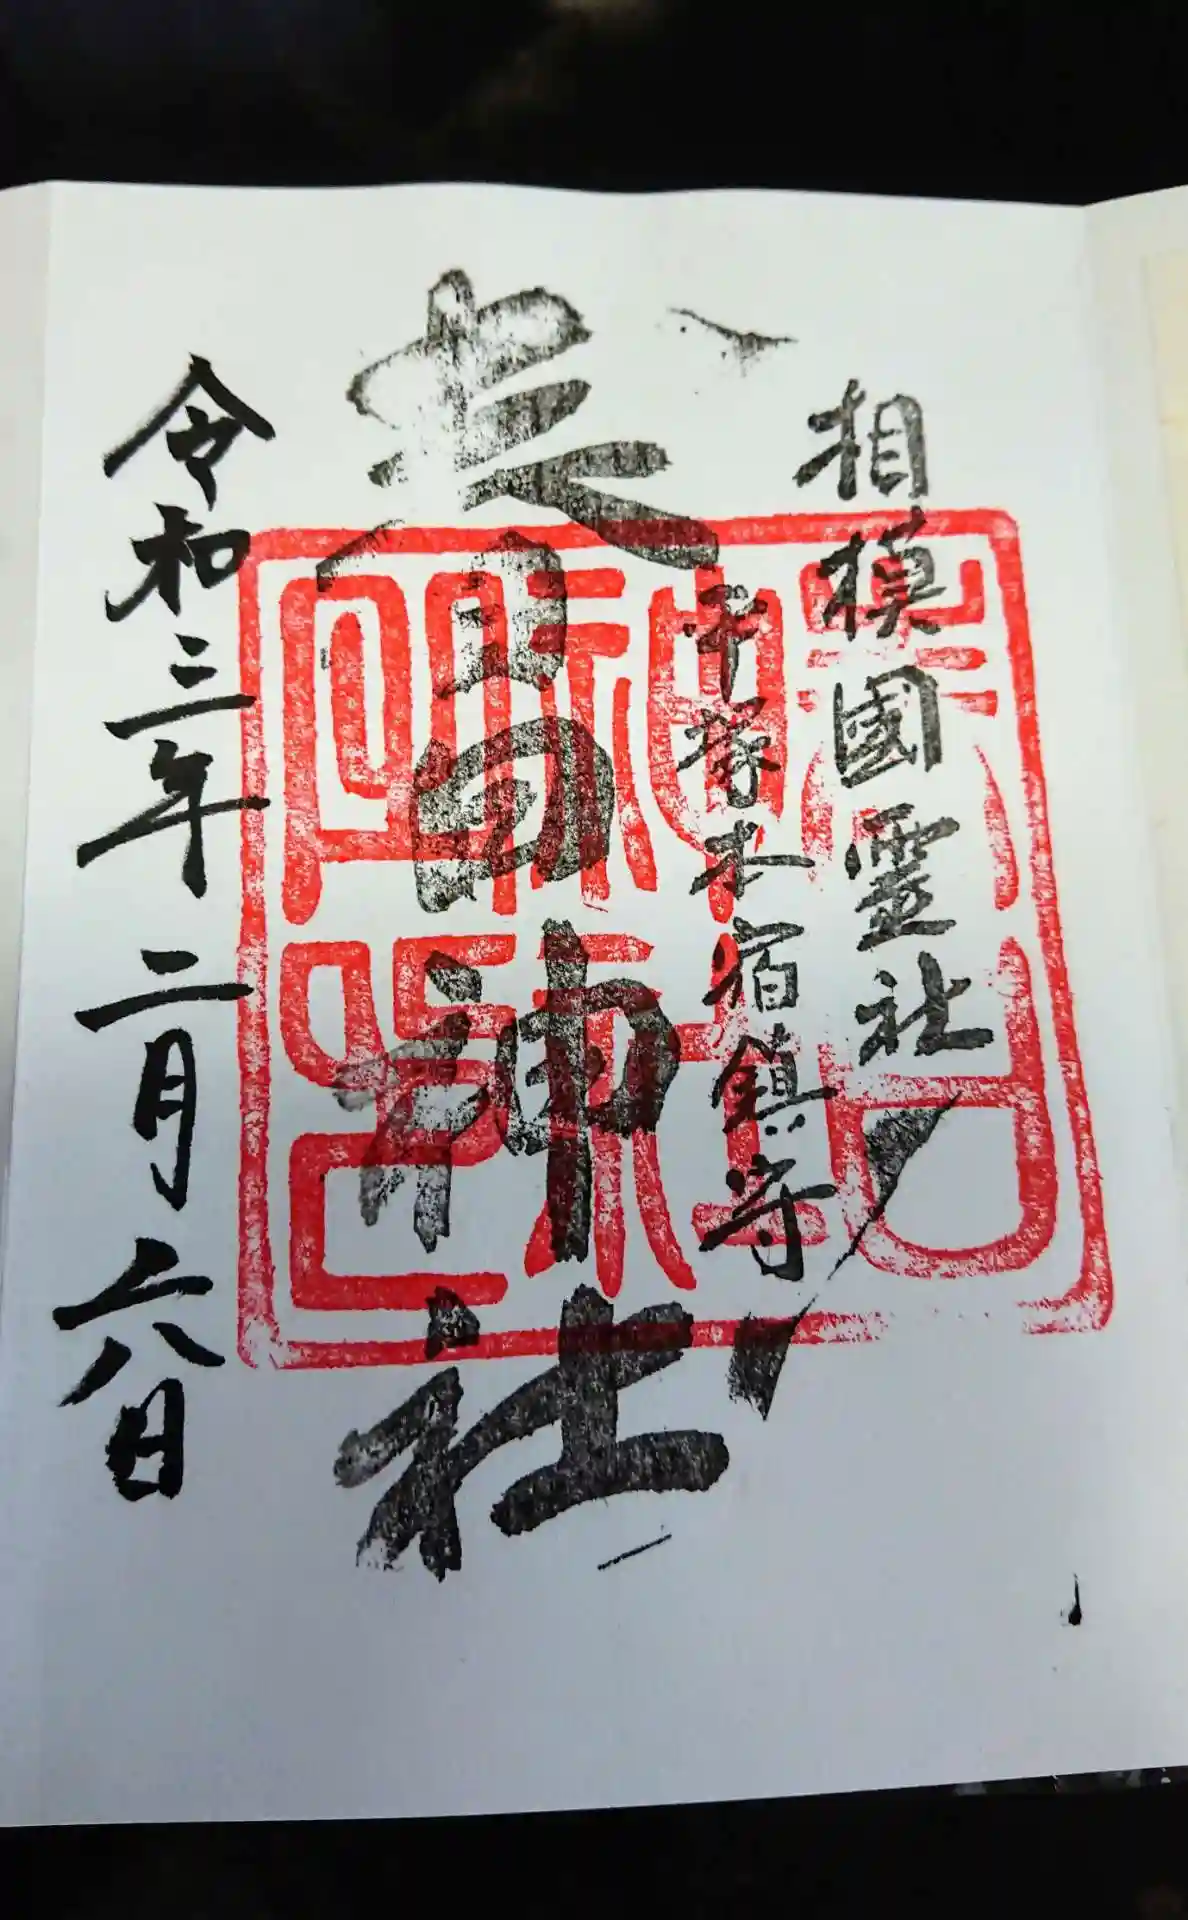 相模國霊社
平塚本宿鎮守
春日神社
令和三年二月六日